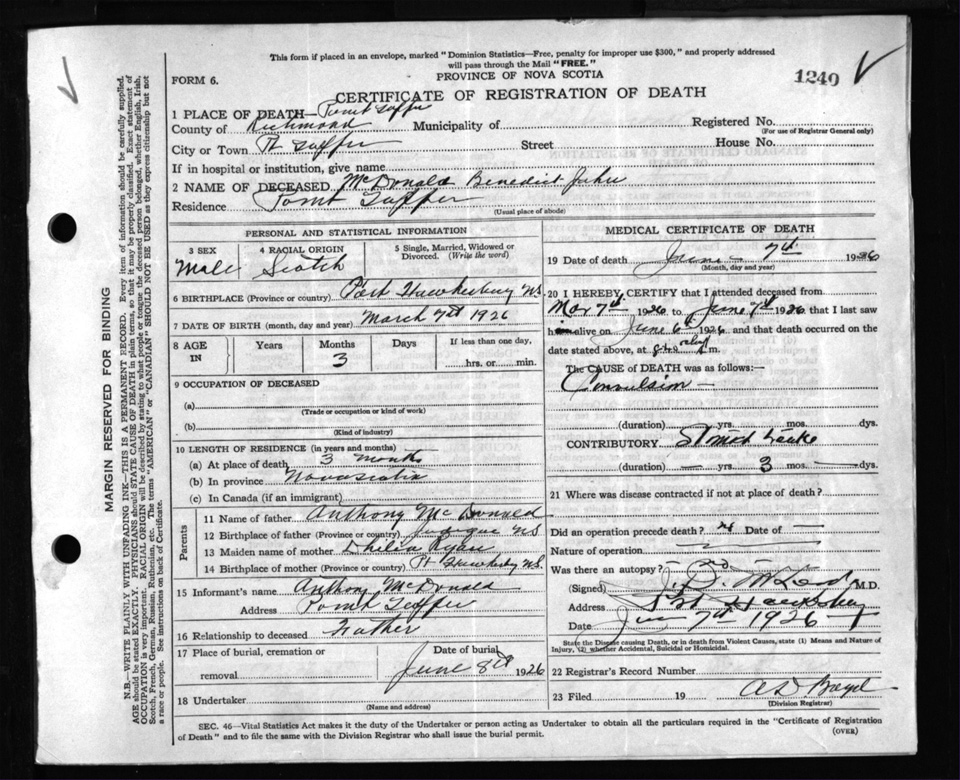 This form if placed in an envelope, marked "Dominion Statistics—Free, penalty for improper use $300," and properly addressed
will pass through the Mail "FREE."
FORM 6.
PROVINCE OF NOVA SCOTIA
1249
CERTIFICATE OF REGISTRATION OF DEATH
1 PLACE OF DEATH— Point Tupper
County of Richmond Municipality of Registered No.
(For use of Registrar General only)
City or Town Pt Tupper Street House No.
If in hospital or institution, give name
2 NAME OF DECEASED McDonald Benedict John
Residence Point Tupper
(Usual place of abode)
PERSONAL AND STATISTICAL INFORMATION
3 SEX 4 RACIAL ORIGIN 5 Single, Married, Widowed or
Divorced. (Write the word)
Male Scotch
6 BIRTHPLACE (Province or country) Port Hawkesbury NS.
7 DATE OF BIRTH (month, day and year) March 7st 1926
8 AGE IN Years Months Days If less than one day,
3 hrs. or min.
9 OCCUPATION OF DECEASED
(a)
(Trade or occupation or kind of work)
(b)
(Kind of industry)
10 LENGTH OF RESIDENCE (in years and months)
(a) At place of death 3 months
(b) In province Nova Scotia
(c) In Canada (if an immigrant)
Parents
11 Name of father Anthony McDonald
12 Birthplace of father (Province or country) Judique NS
13 Maiden name of mother Ryan
14 Birthplace of mother (Province or country) Pt Hawkesbry N.S.
15 Informant's name Anthony McDonald
Address Point Tupper
16 Relationship to deceased Father
17 Place of burial, cremation or Date of burial
removal June 8th 1926
18 Undertaker
(Name and address)
MEDICAL CERTIFICATE OF DEATH
19 Date of death June 7th 1926
(Month, day and year)
20 I HEREBY CERTIFY that I attended deceased from
Mar 7th 1926 to June 7th 1926 that I last saw
him alive on June 6th 1926, and that death occurred on
date stated above, at m.
The CAUSE of DEATH was as follows:—
Convulsion —
(duration) yrs. mos. dys.
CONTRIBUTORY
(duration) — yrs. 3 mos. — dys.
21 Where was disease contracted if not at place of death?
Did an operation precede death? Date of —
Nature of operation
Was there an autopsy? no
(Signed) M.D.
Address Port Hawkesbry
Date June 7th 1926
State the Disease causing Death, or in death from Violent Causes, state (1) Means and Nature of
Injury, (2) whether Accidental, Suicidal or Homicidal.
22 Registrar's Record Number
23 Filed 19
(Division Registrar)
SEC. 46—Vital Statistics Act makes it the duty of the Undertaker or person acting as Undertaker to obtain all the particulars required in the "Certificate of Registration
of Death" and to file the same with the Division Registrar who shall issue the burial permit.
(OVER)
MARGIN RESERVED FOR BINDING
N.B.—WRITE PLAINLY WITH UNFADING INK—THIS IS A PERMANENT RECORD. Every item of information should be carefully supplied.
AGE should be stated EXACTLY. PHYSICIANS should STATE CAUSE OF DEATH in plain terms, so that it may be properly classified. Exact statement of
OCCUPATION is very important. RACIAL ORIGIN will be described by stating to what people or tongue the deceased person belonged, whether English, Irish,
Scotch, French, German, Russian, Ruthenian, etc. The terms "AMERICAN" or "CANADIAN" SHOULD NOT BE USED as they express citizenship but not
a race or people. See instructions on back of Certificate.